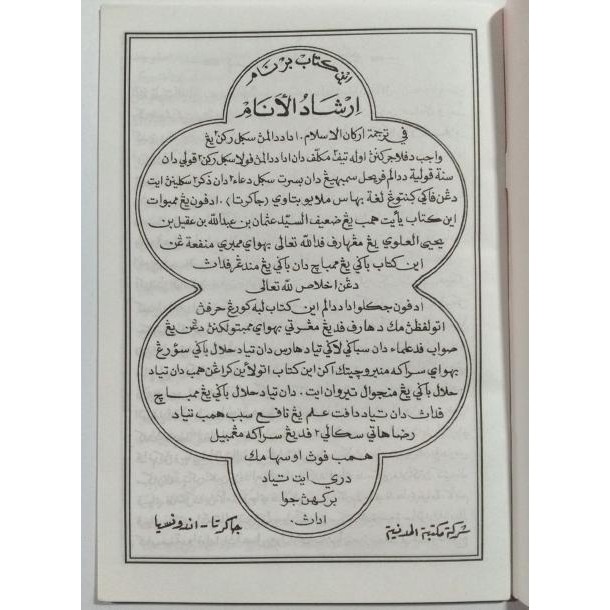 اين كتاب برنام
إرشاد الأنام
في ترجمة اركان الاسلام . اد ددالمڽ سݢل ركن٢ يڠ
واجب دفلاجركنڽ اوله تيف٢ مكلف دان اد ددالمڽ فولا سݢل ركن٢ قولي دان
سنة قولية ددالم فريحل سمبهيڠ دان بسرت سݢل دعاء٢ دان ذكر٢ سكلينڽ ايت
دڠن فاكي كنتوڠ لغة بهاس ملايو بتاوي (جاكرتا) . ادفون يڠ ممبوات
اين كتاب يأيت همب يڠ ضعيف السيّد عثمان بن عبدالله بن عقيل بن
يحيى العلوي يڠ مڠهارف فدالله تعالى بهواي ممبري منفعة دڠن
اين كتاب باݢي يڠ ممباچ دان باݢي يڠ مندڠر فداڽ
دڠن اخلاص لله تعالى
ادفون جكلو اد ددالم اين كتاب لبه كورڠ حرفڽ
اتو لفظڽ مك دهارف فد يڠ مڠرتي بهواي ممبتولكنڽ دڠن يڠ
صواب فد علماء دان سباݢي لاݢي تياد هارس دان تياد حلال باݢي سؤرڠ
بهواي سراكه منبر وچيتك اكن اين كتاب اتو لأين كراڠن همب دان تياد
حلال باݢي يڠ منجوال تيروان ايت . دان تياد حلال باݢي يڠ ممباچ
فداڽ دان تياد دافت علم يڠ نافع سبب همب تياد
رضا هاتي سكالي٢ فد يڠ سراكه مڠمبيل
همب فوڽ اوسها مك
دري ايت تياد
بركهڽ جوا
اداڽ .
شركة مكتبة المدنية
جاكرتا - اندونسيا